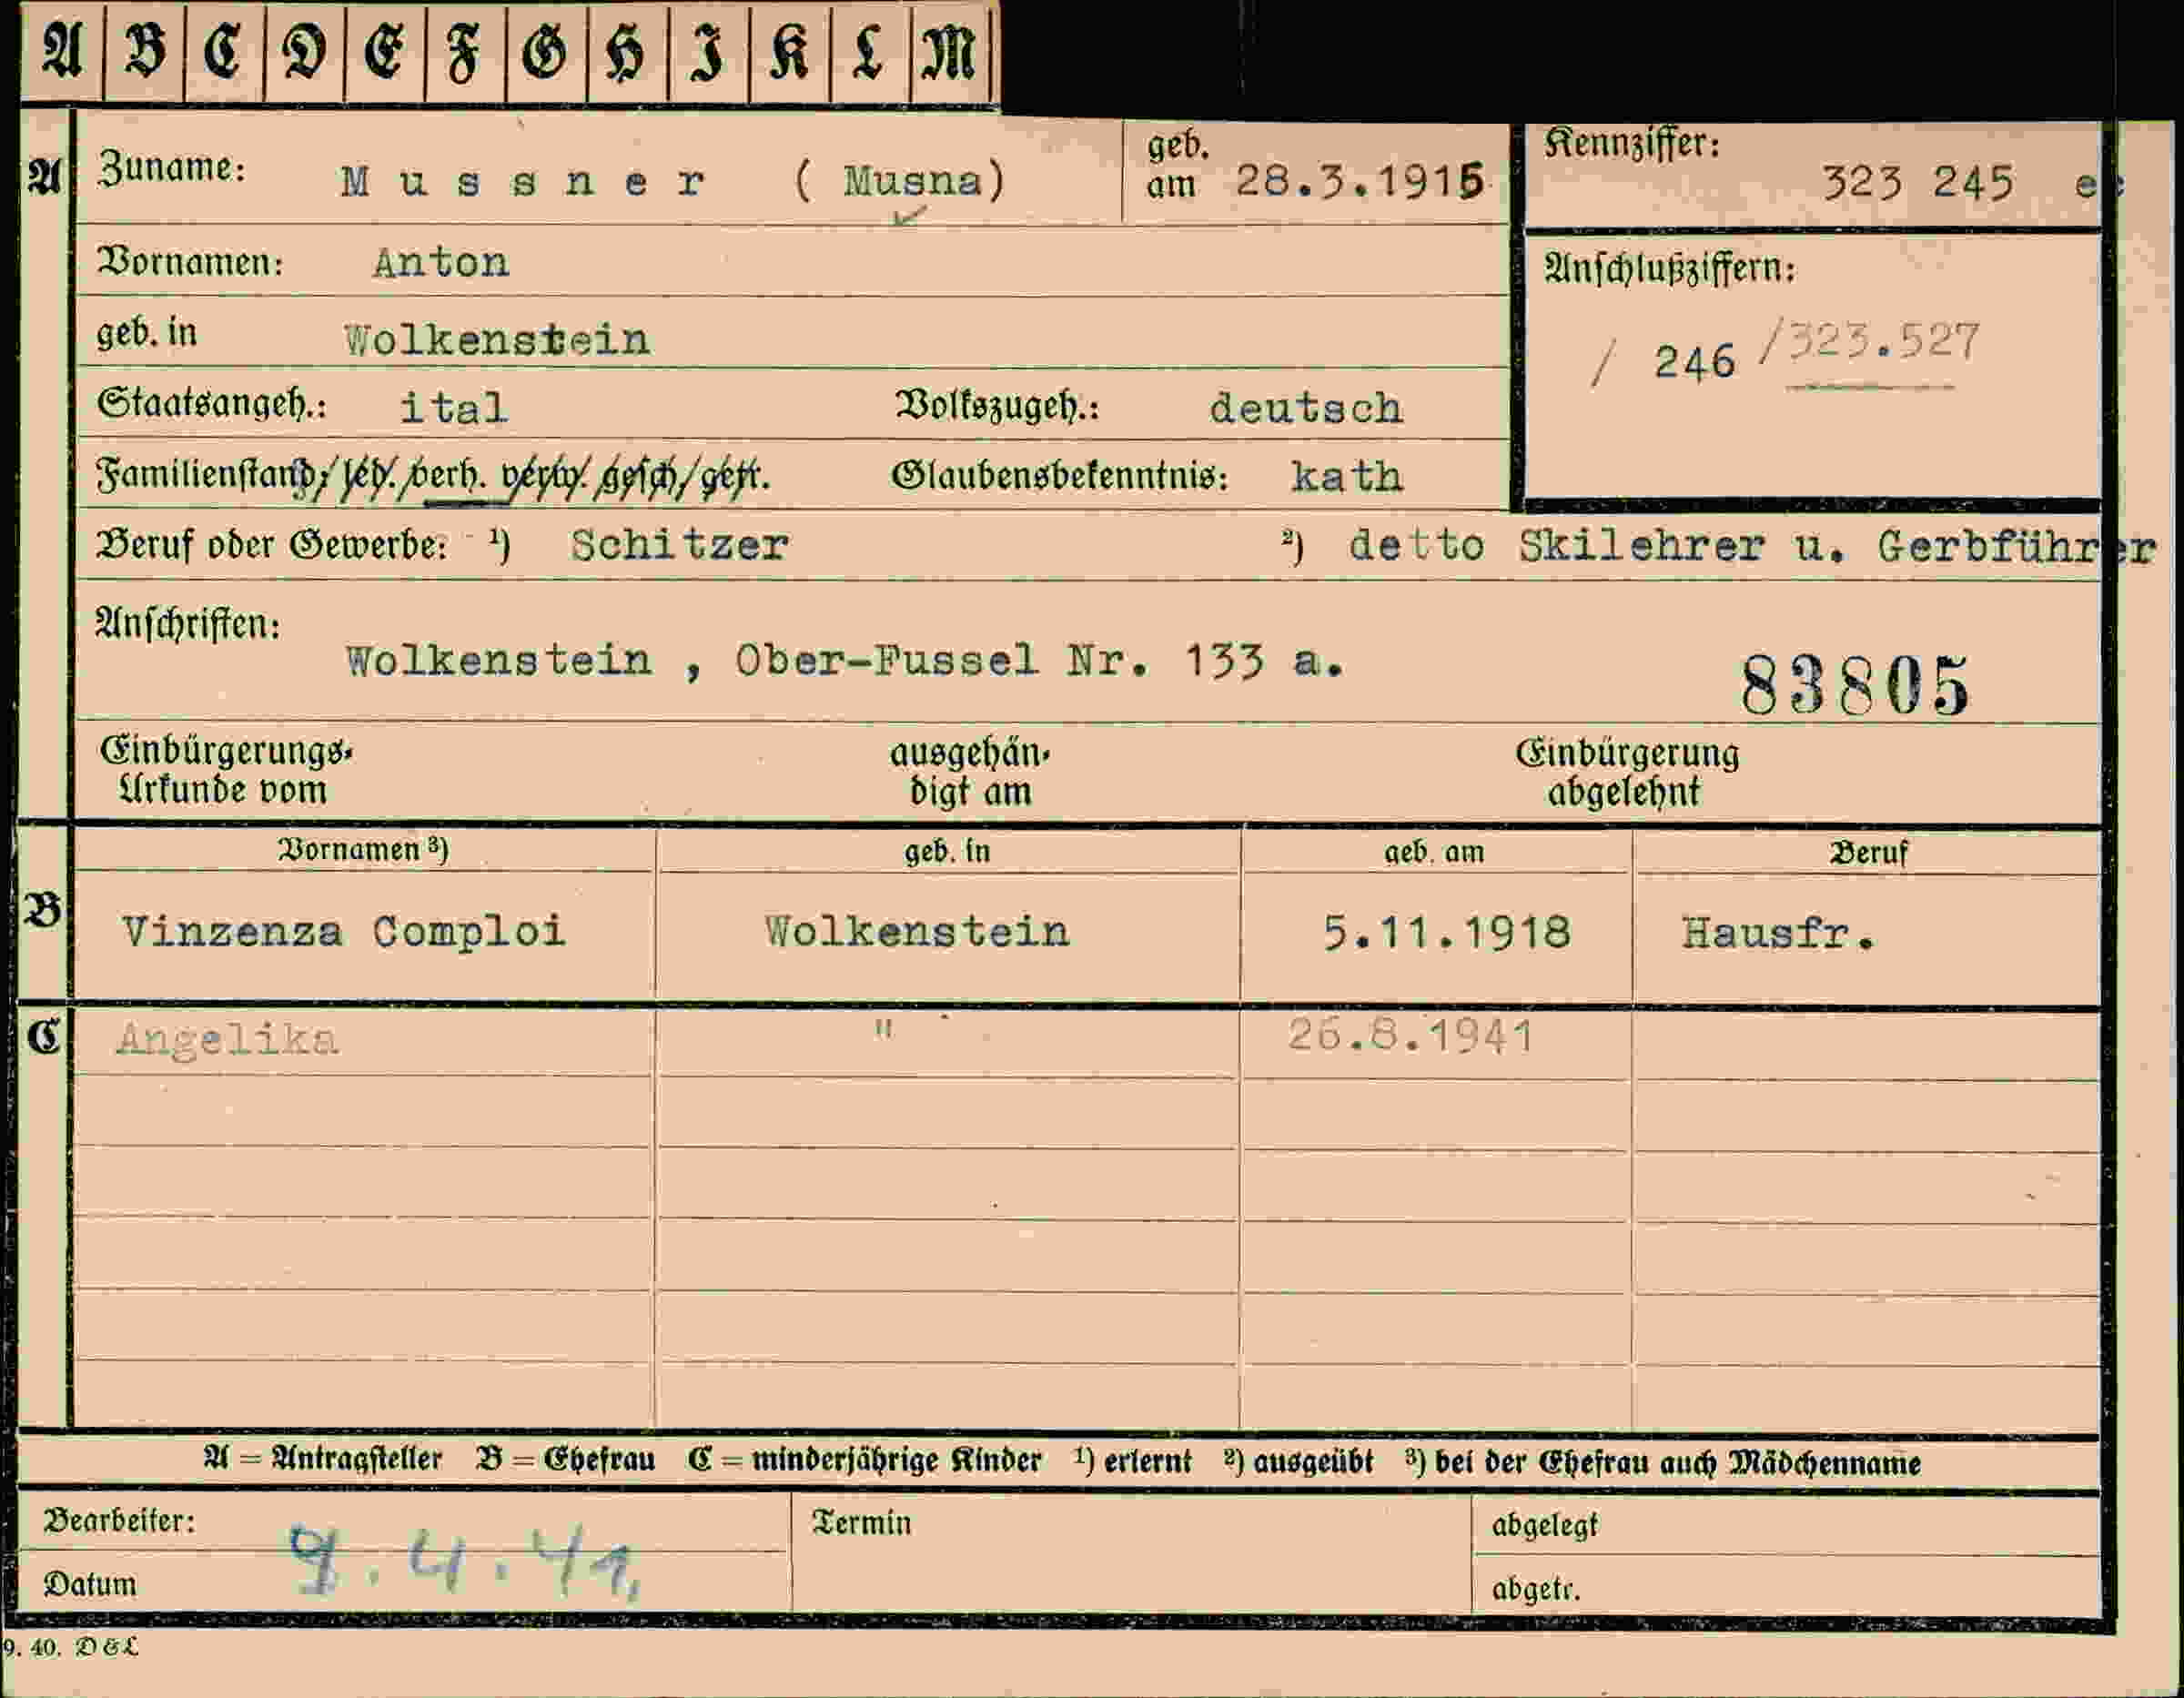 A B C D E F G H I K L M
A Zuname: Mussner (Musna) geb. am 28.3.1915 Kennziffer: 323 245
Vornamen: Anton Anschlußziffern:
geb. in Wolkenstein / 246 /323.527
Staatsangeh.: ital Volkszugeh.: deutsch
Familienstand: led. verh. verw. gesch. getr. Glaubensbekenntnis: kath
Beruf oder Gewerbe: ¹) Schitzer ²) detto Skilehrer u. Gerbführer
Anschriften:
Wolkenstein , Ober-Fussel Nr. 133 a.
83805
Einbürgerungs- ausgehän- Einbürgerung
Urkunde vom digt am abgelehnt
Vornamen ³) geb. in geb. am Beruf
B Vinzenza Comploi Wolkenstein 5.11.1918 Hausfr.
C Angelika " 26.8.1941
A = Antragsteller B = Ehefrau C = minderjährige Kinder ¹) erlernt ²) ausgeübt ³) bei der Ehefrau auch Mädchenname
Bearbeiter: Termin abgelegt
9.4.41.
Datum abgetr.
9. 40. D&L